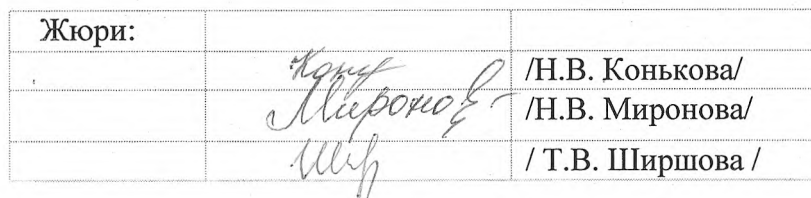 Жюри:
/Н.В. Конькова/
Миронов /Н.В. Миронова/
/ Т.В. Ширшова /